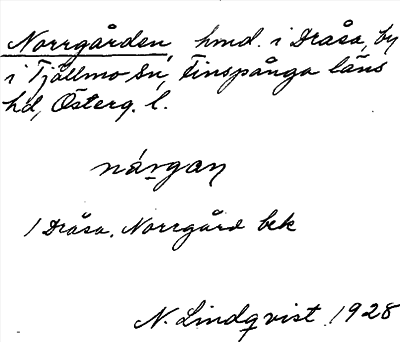 Norrgården, hmd. i Dråsa, by
i Tjällmo Sn, Finspånga läns
hd, Österg. l.
nárgan
/ Dråsa. Norrgård bek
N. Lindqvist 1928